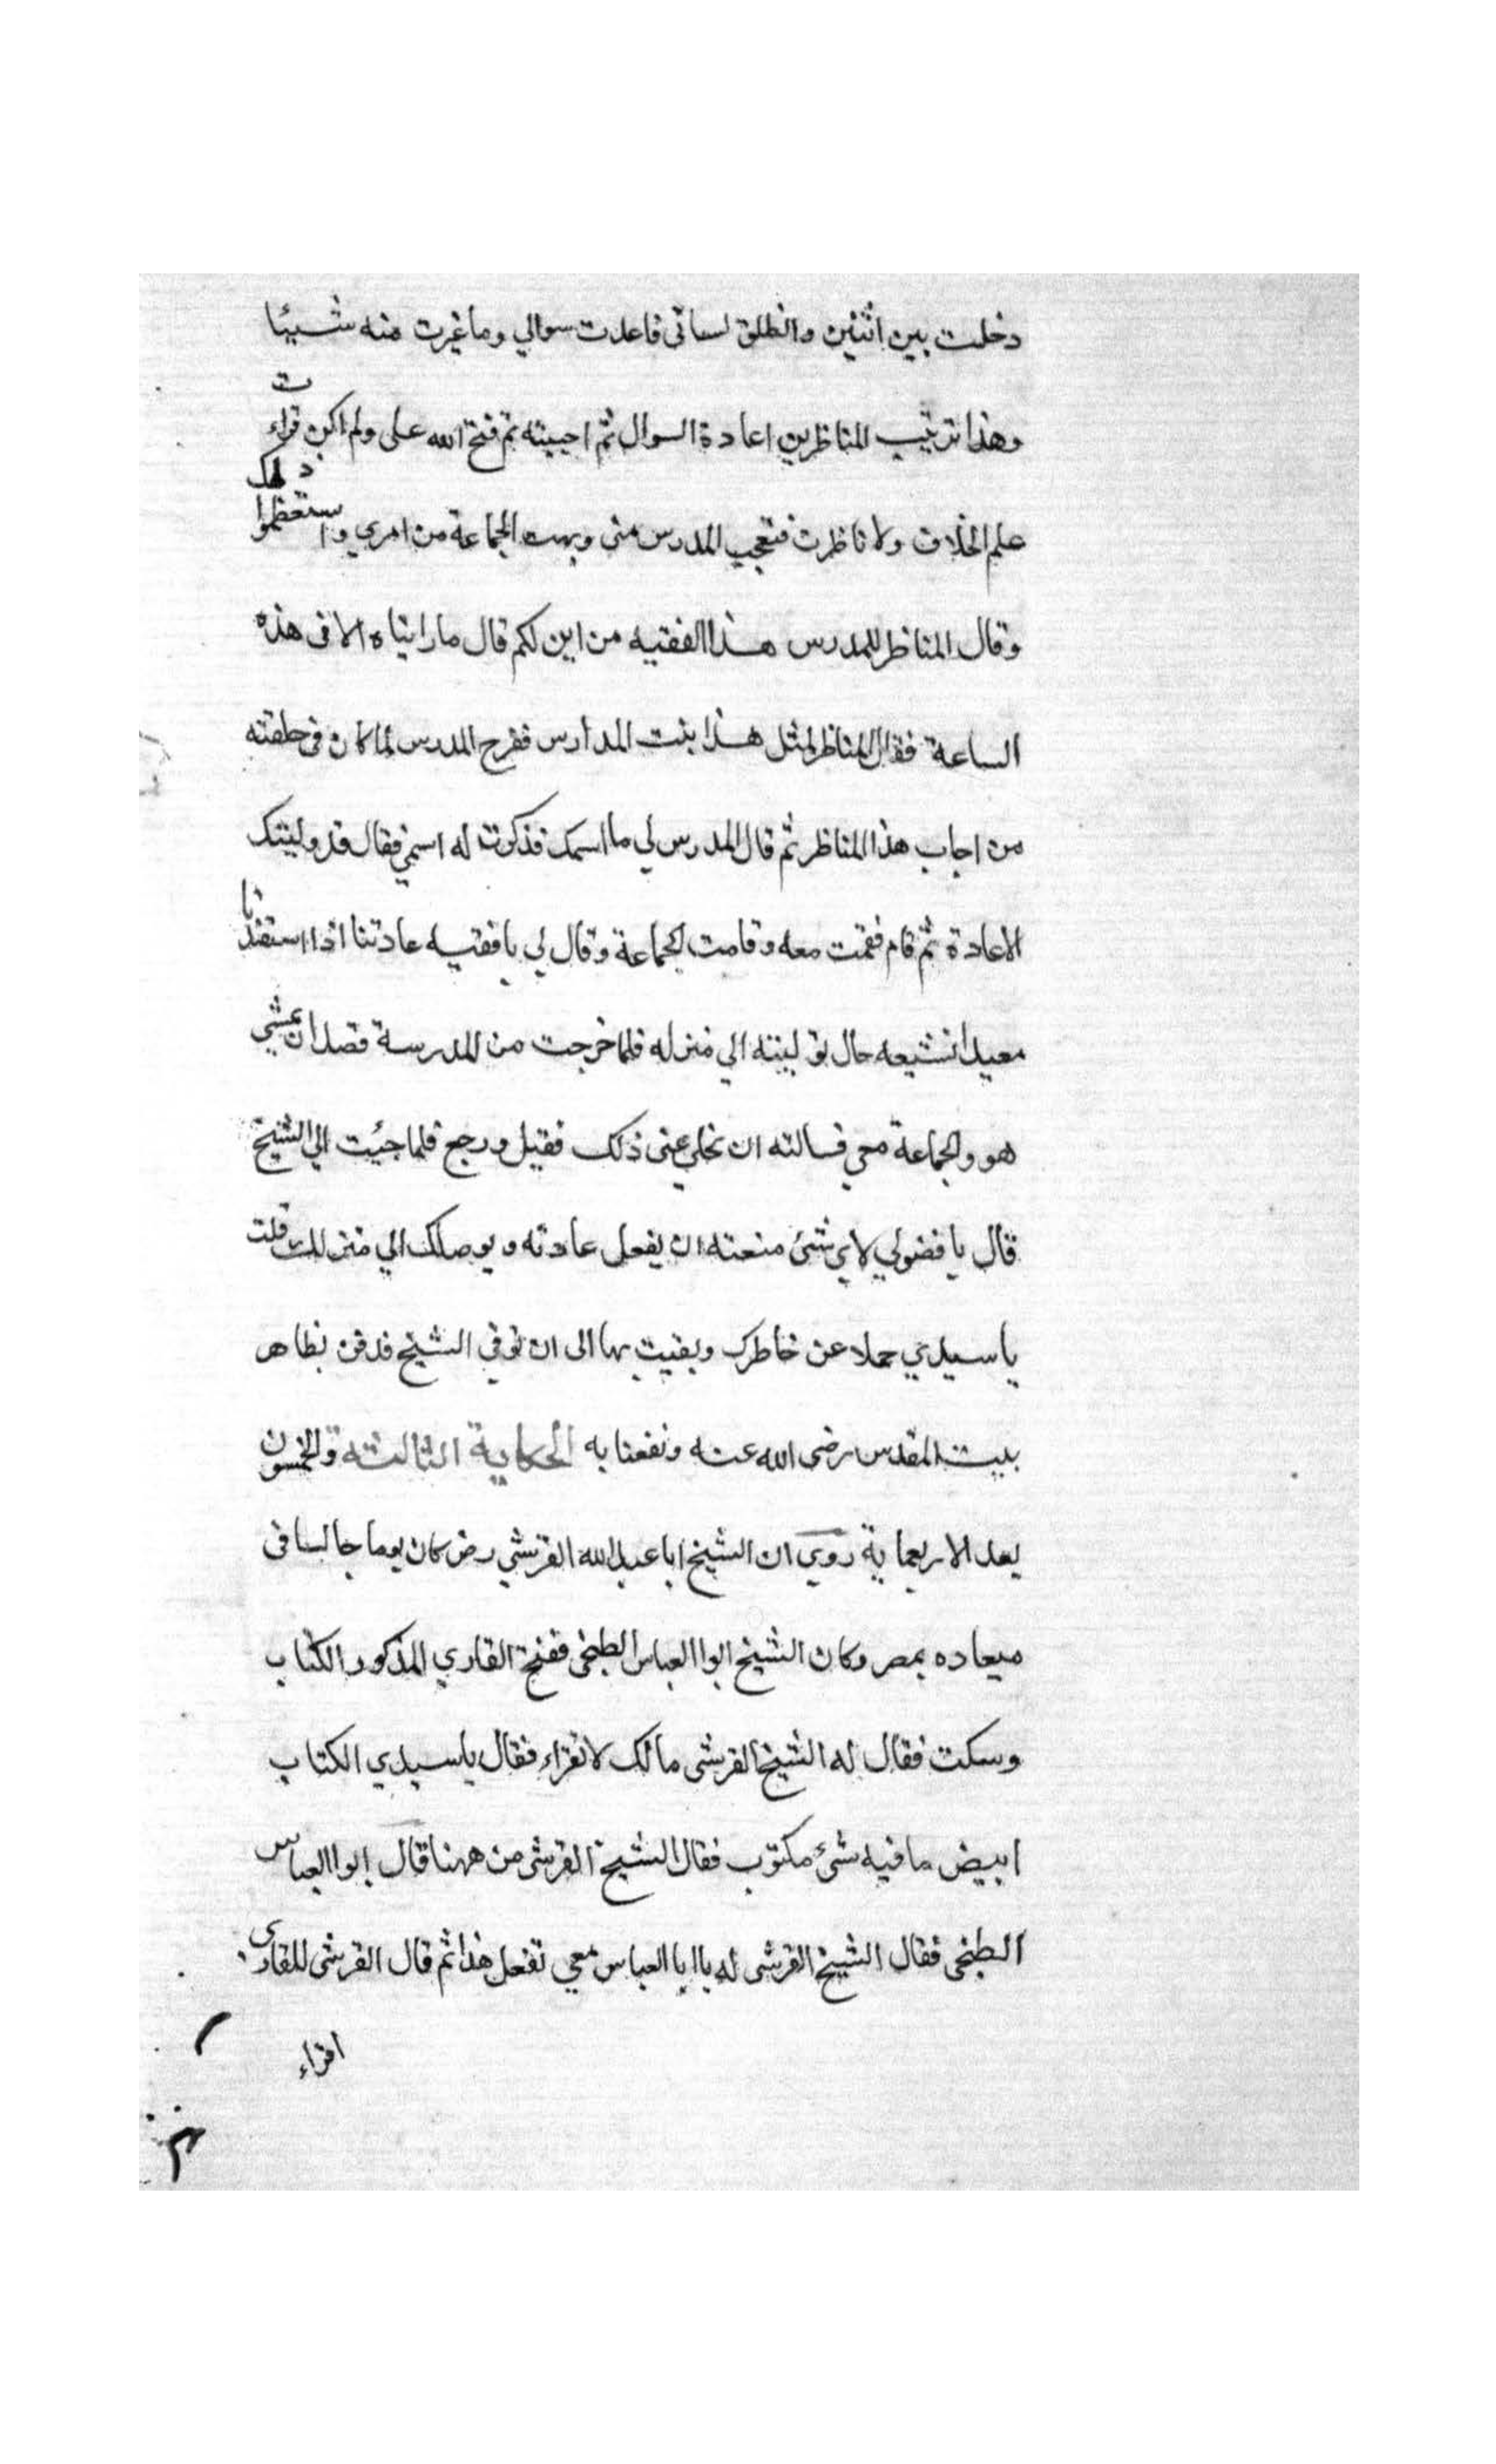 دخلت بين اثنين وانطلق لسانى فاعدت سوالي وما غيرت منه شيئا
وهذا ترتيب المناظرين اعادة السوال ثم اجبيته ثم فتح الله على ولم اكن قراءت
علم الخلاف ولا ناظرت فتعجب المدرس منى وبهت الجماعة من امري واستعظموا ذلك
وقال المناظر للمدرس هذا الفقيه من اين لكم قال ما راينا ه الا فى هذه
الساعة فقال المناظر لمثل هذا بنت المدارس ففرح المدرس لما كان فى حلقته
من اجاب هذا المناظر ثم قال المدرس لي ما اسمك فذكرت له اسمي فقال قد وليتك
الاعادة ثم قام فقمت معه وقامت الجماعة وقال لي يا فقيه عادتنا اذا استفدنا
معيدا نشيعه حال توليته الي منزله فلما خرجت من المدرسة قصد ان يمشي
هو والجماعة معي فسالته ان يخلي عنى ذلك فقبل ورجع فلما جيئت الي الشيخ
قال يا فضولي لاي شئ منعته ان يفعل عادته ويوصلك الي منزلك قلت
يا سيدي حملا عن خاطرك وبقيت بها الى ان توفي الشيخ فدفن بظاهر
بيت المقدس رضى الله عنه ونفعنا به الحكاية الثالثة والخمسون
بعد الاربعماية روي ان الشيخ ابا عبد الله القرشي رض كان يوما جالسا فى
ميعاده بمصر وكان الشيخ ابوا العباس الطنجى ففتح القاري المذكور الكتاب
وسكت فقال له الشيخ القرشى مالك لا تقراء فقال يا سيدي الكتاب
ابيض ما فيه شئ مكتوب فقال الشيخ القرشى من ههنا قال ابوا العباس
الطنجى فقال الشيخ القرشى له يا ابا العباس معي تفعل هذا ثم قال القرشى للقارى
اقراء